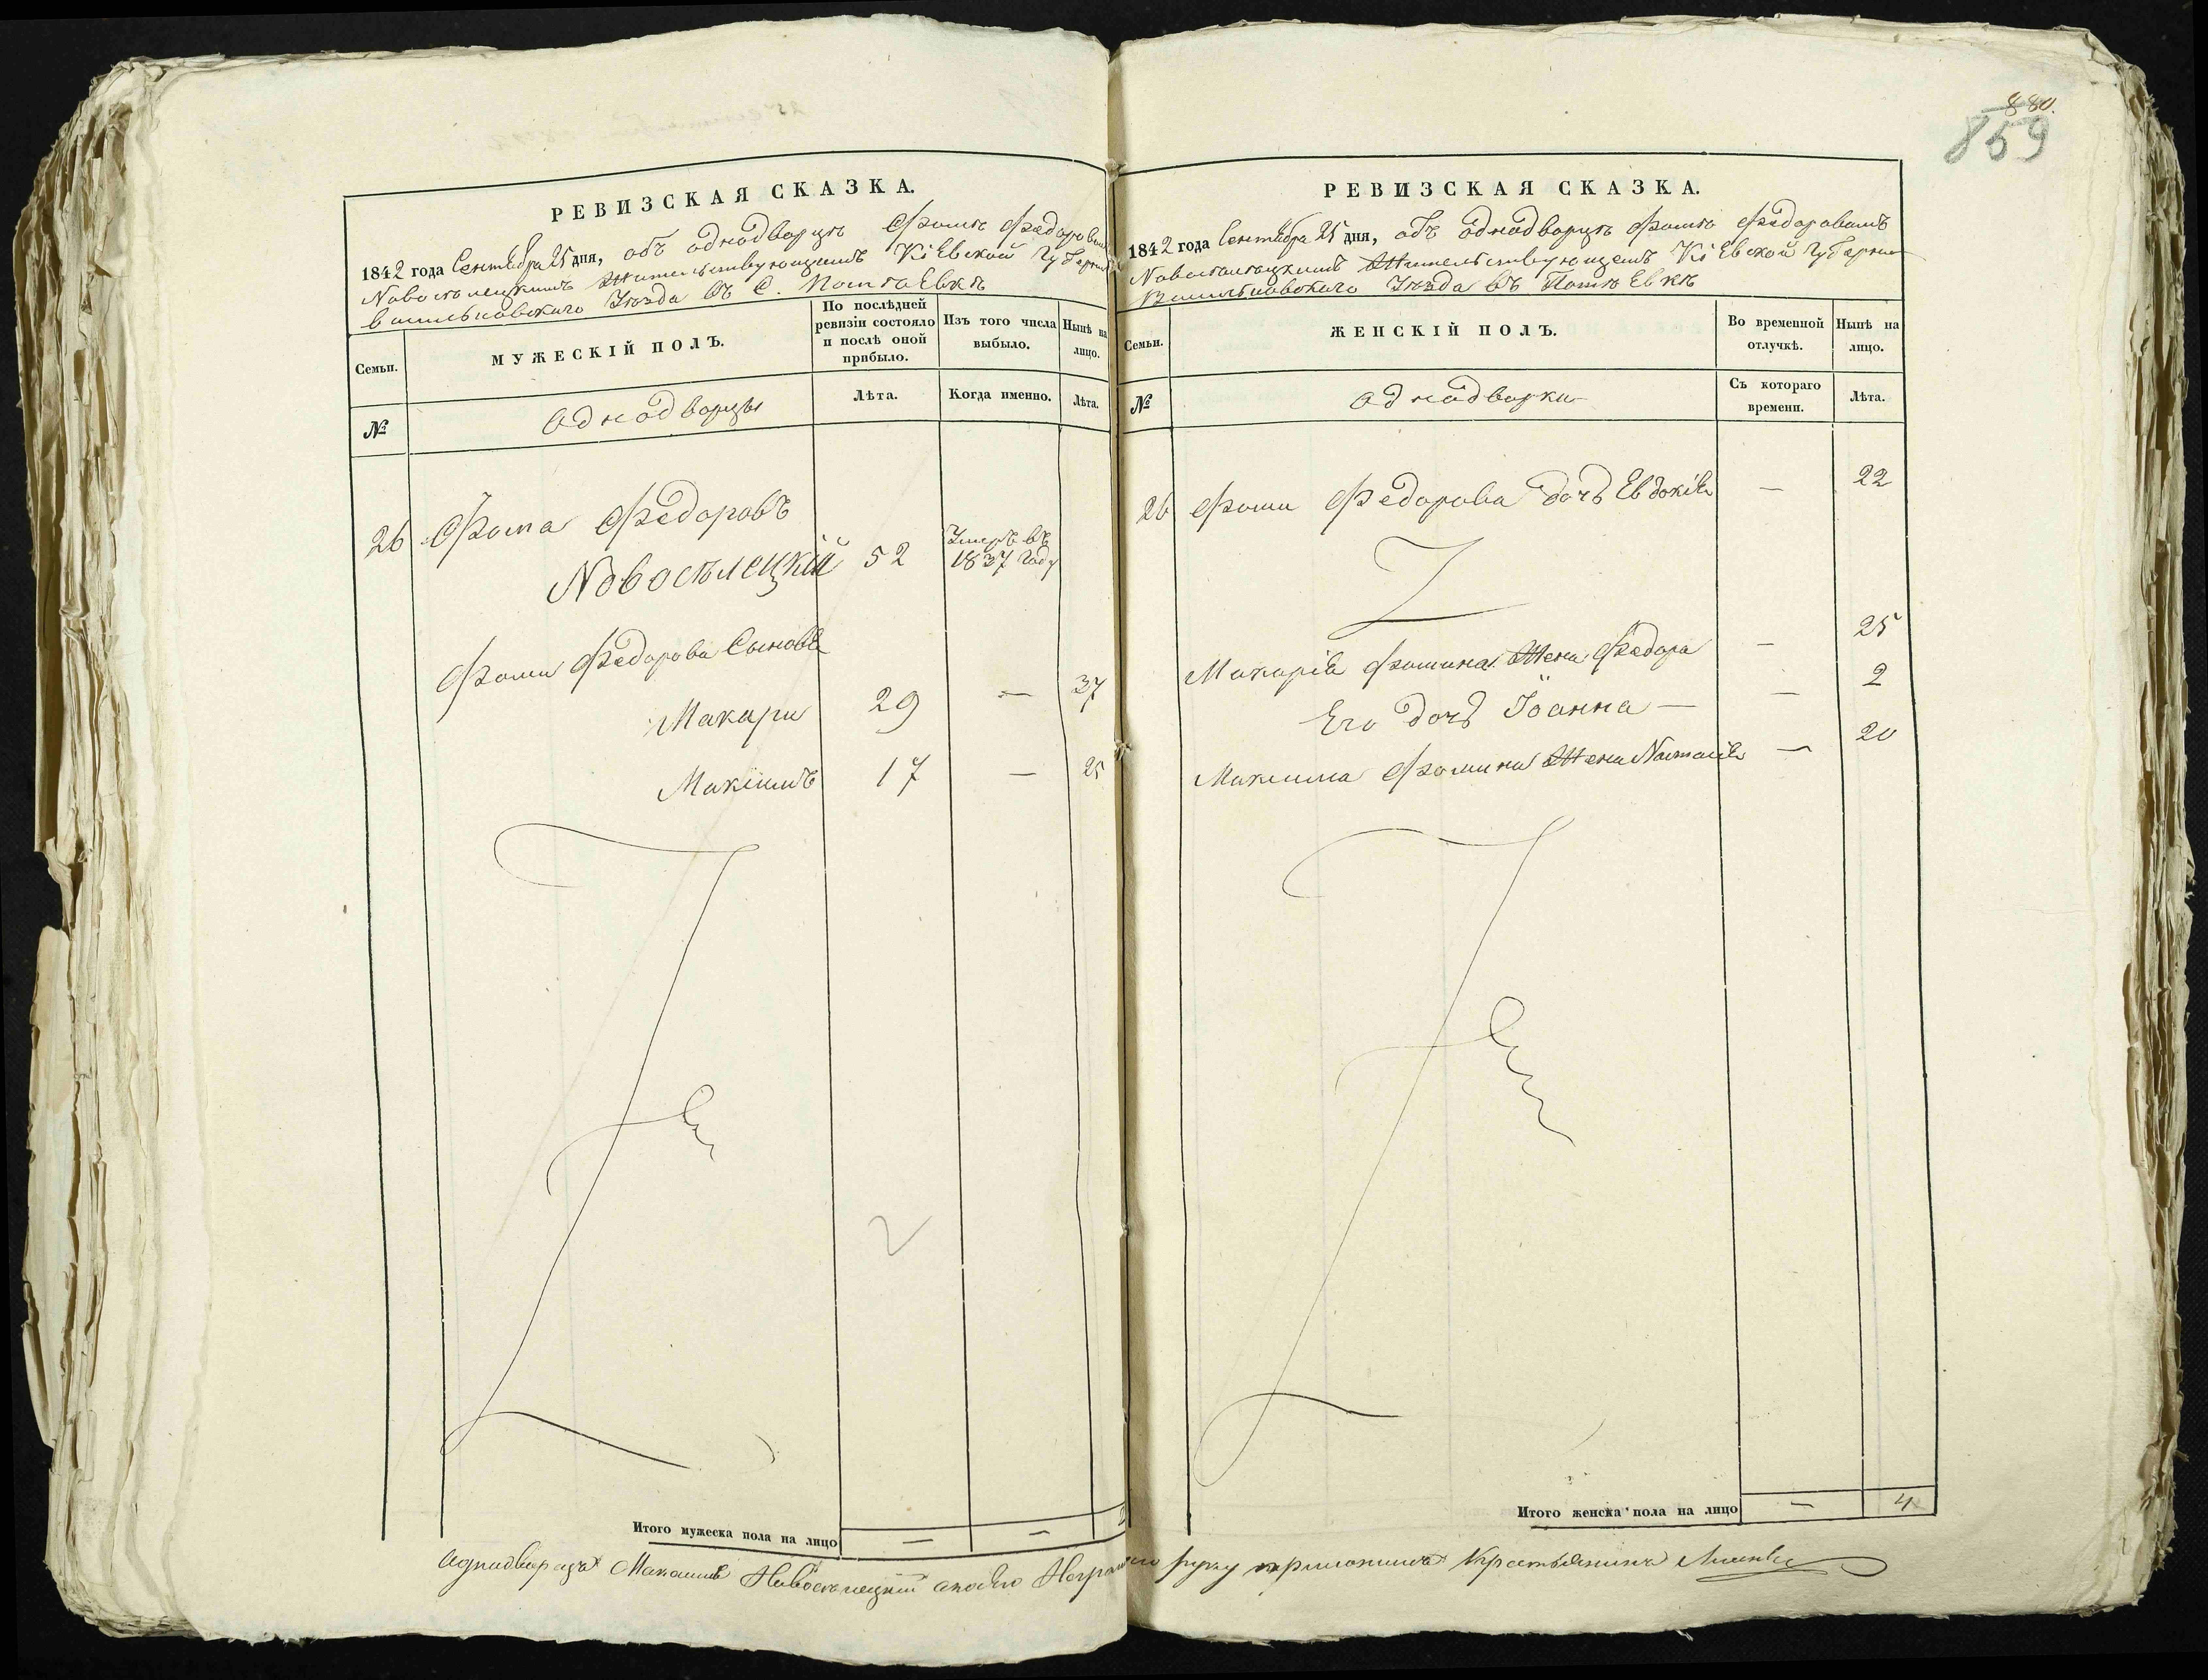 880.
859
РЕВИЗСКАЯ СКАЗКА.
1842 года Сентября 25 дня, объ однодворцѣ Фомѣ Федорове
Новосѣлецкимъ Жительствующимъ Кіевской Губерніи
Васильковского Уѣзда въ С.
Семьи.
МУЖЕСКІЙ ПОЛЪ.
По послѣдней ревизіи состояло и послѣ оной прибыло.
Изъ того числа выбыло.
Нынѣ на лицо.
№
однодворцы
Лѣта.
Когда именно.
Лѣта.
26 Фома Федоровъ
Новосѣлецкій 52 Умеръ въ 1837 году
Фомы Федорова Сыновья
Макари 29 — 37
Максимъ 17 — 25
2
Итого мужеска пола на лицо — — 2
РЕВИЗСКАЯ СКАЗКА.
1842 года Сентября 25 дня, объ однодворцѣ Фомѣ Федоровомъ
Новоселецкимъ Жительствующемъ Кіевской Губерніи
Васильковского Уѣзда въ
Семьи.
ЖЕНСКІЙ ПОЛЪ.
Во временной отлучкѣ.
Нынѣ на лицо.
№
однодворки
Съ котораго времени.
Лѣта.
26 Фомы Федорова дочь Евдокія — 22
Макарія Фомина Жена Федора — 25
Его дочь Іоанна — — 2
Максима Фомина Жена Наталія — 20
Итого женска пола на лицо — 4
Новосѣлецкій руку приложилъ